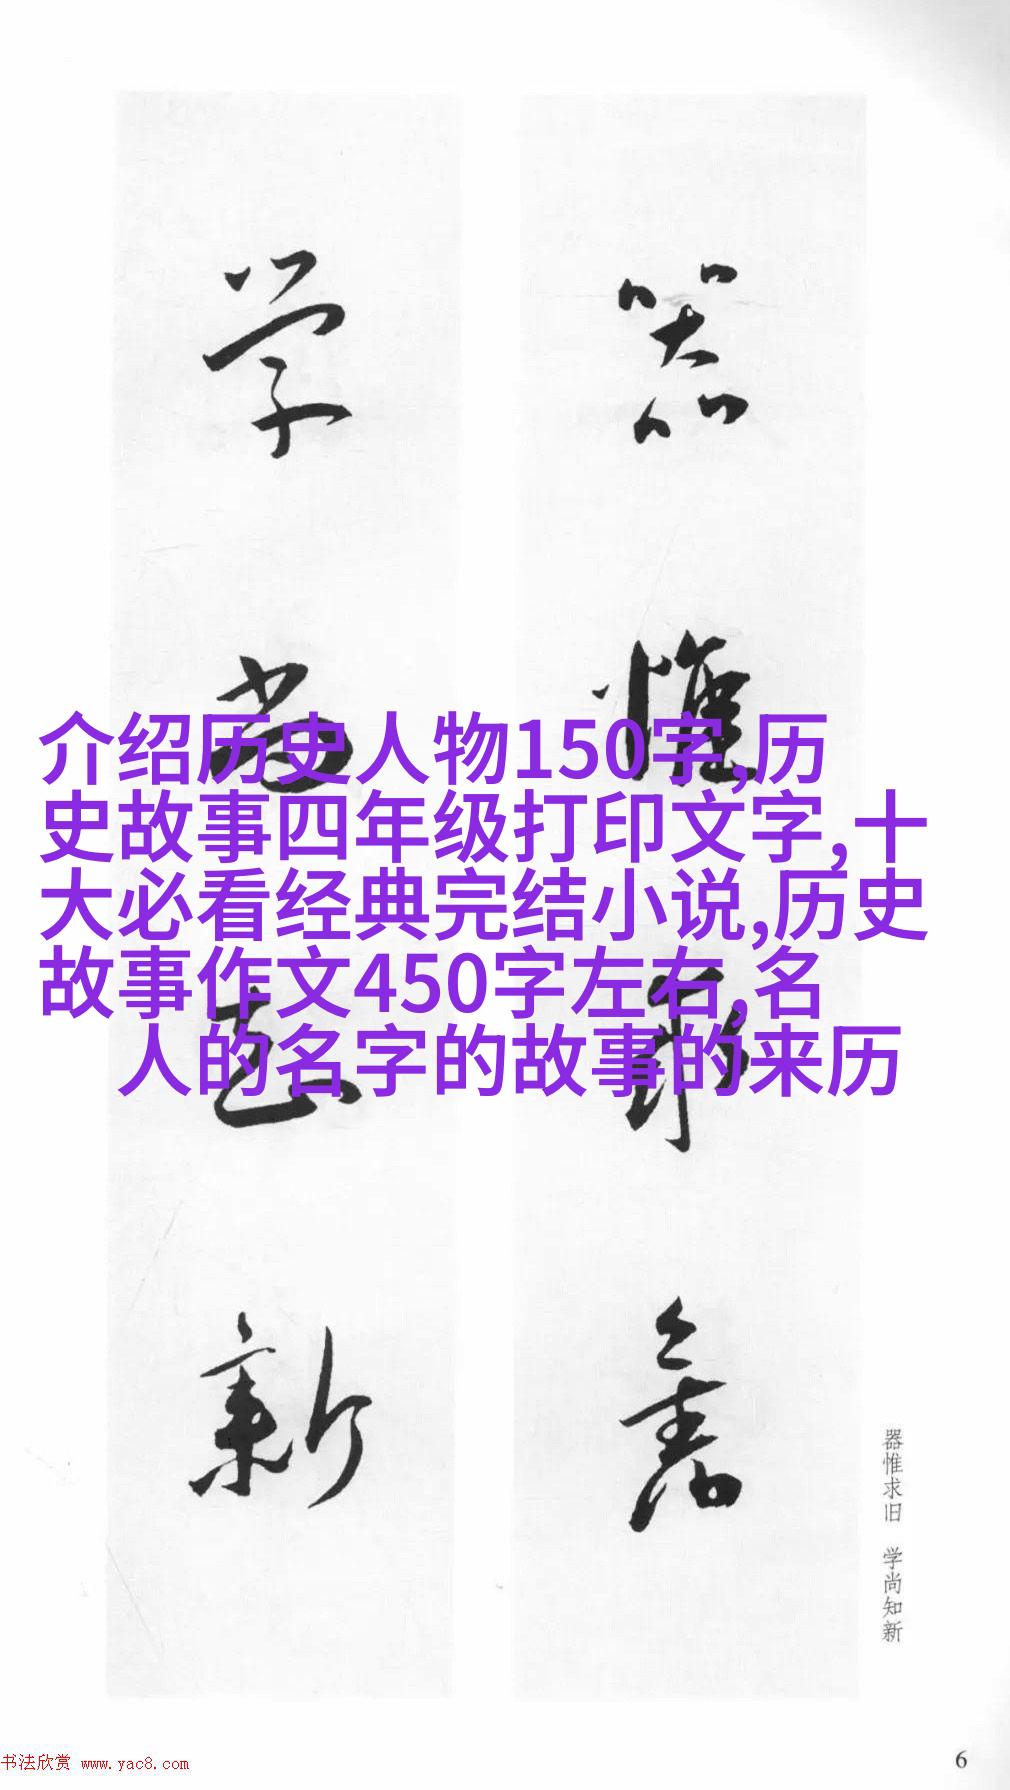 器惟求舊
学尚知新
介绍历史人物150字,历
史故事四年级打印文字,十
大必看经典完结小说,历史
故事作文450字左右,名
人的名字的故事的来历
器惟求旧 学尚知新
书法欣赏 www.yac8.com
6